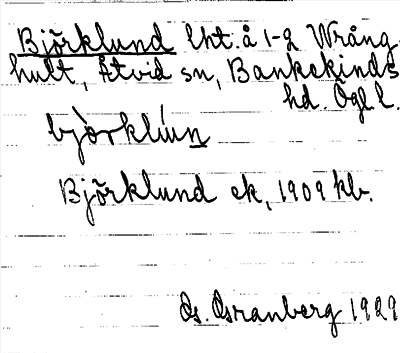 Björklund lht. å 1-2 Wrång-
hult, Åtvid sn, Bankekinds
hd. Ögl l.
bjò̀rklúun
Björklund ek, 1909 kb.
Os. Osvanberg 1929